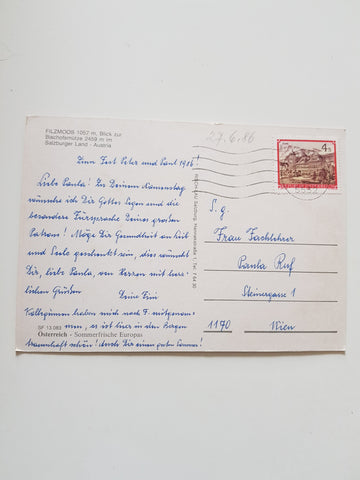 FILZMOOS 1057 m, Blick zur
Bischofsmütze 2459 m im
Salzburger Land - Austria
27.6.86
4 S
REPUBLIK ÖSTERREICH
Zum Fest Peter und Paul 1986!
Liebe Paula! Zu Deinem Namenstag
wünsche ich Dir Gottes Segen und die
besondere Fürsprache Deines großen
Patrons! Möge Dir Gesundheit an Leib
und Seele geschenkt sein, dies wünscht
Dir, liebe Paula, von Herzen mit herz-
lichen Grüßen
Deine Fini
haben mich nach F. mitgenom-
men, es ist hier in den Bergen
traumhaft schön! Auch Dir einen guten Sommer!
S. g.
Frau Fachlehrer
Paula Ruf
Steinergasse 1
1170 Wien
SF 13.083
Österreich - Sommerfrische Europas